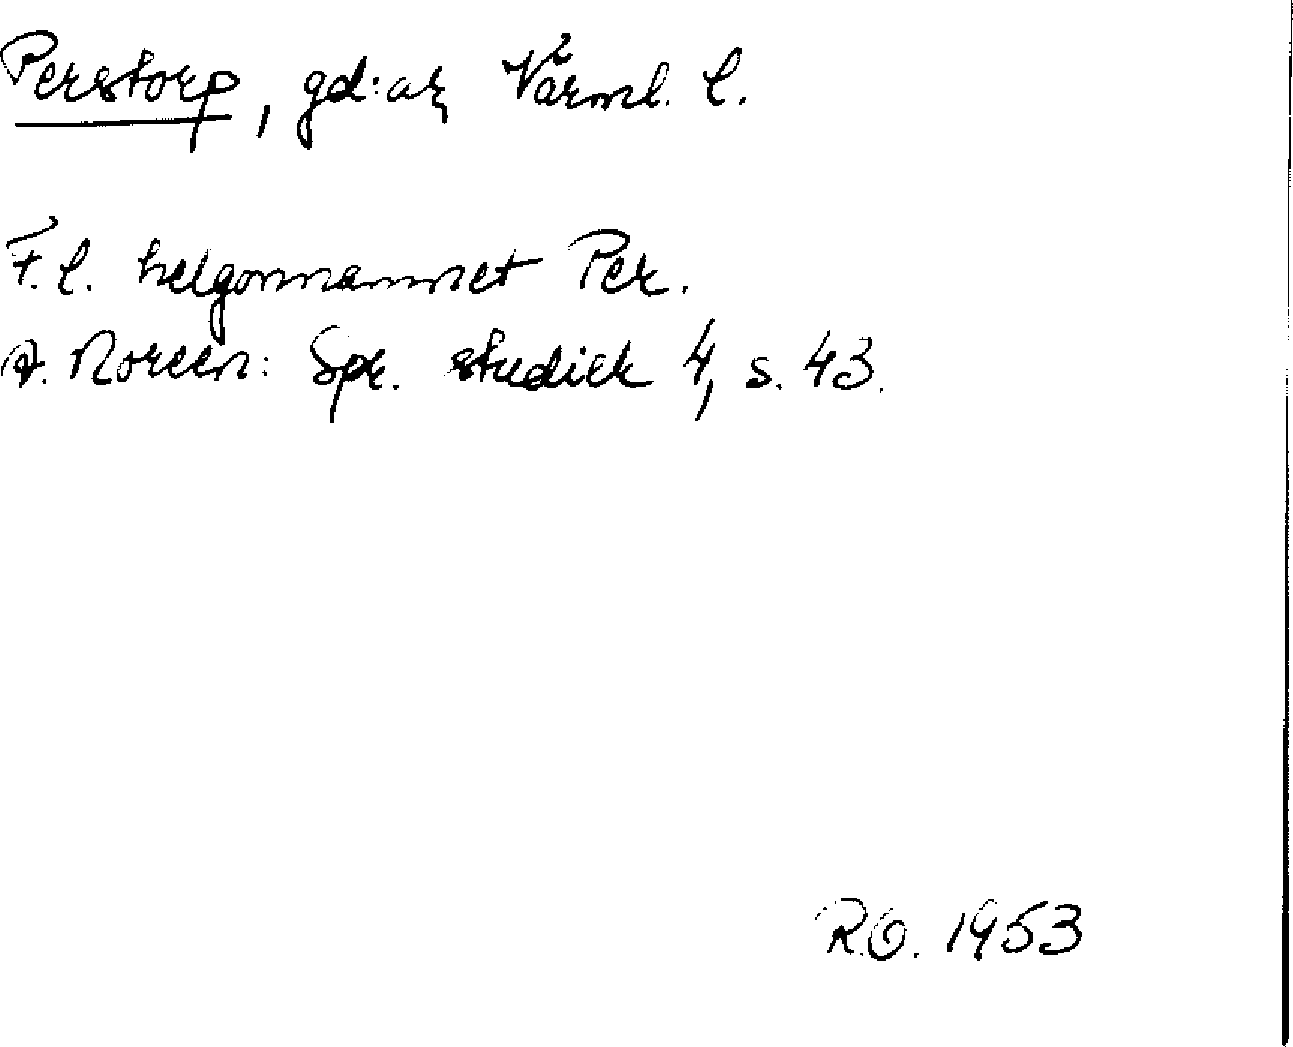 Perstorp, gd:ar Värml. l.
F.l. helgonnamnet Per.
A. Noreen: Spr. studier 4, s. 43.
R.O. 1953